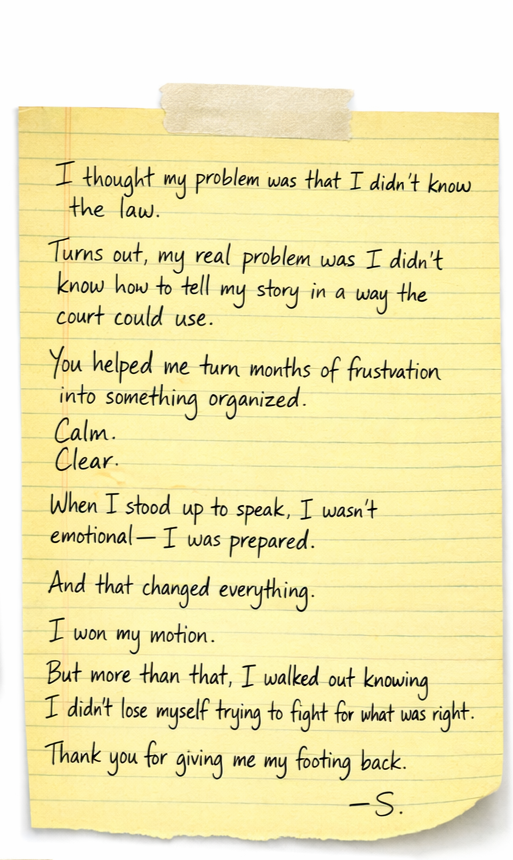 I thought my problem was that I didn't know
the law.
Turns out, my real problem was I didn't
know how to tell my story in a way the
court could use.
You helped me turn months of frustration
into something organized.
Calm.
Clear.
When I stood up to speak, I wasn't
emotional— I was prepared.
And that changed everything.
I won my motion.
But more than that, I walked out knowing
I didn't lose myself trying to fight for what was right.
Thank you for giving me my footing back.
—S.